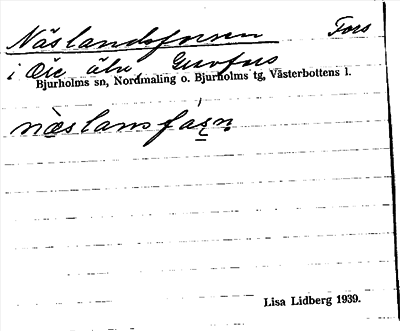 Näslandsforsen Fors
i Öre älv
Bjurholms sn, Nordmaling o. Bjurholms tg, Västerbottens l.
næslansfaṣṇ
Lisa Lidberg 1939.